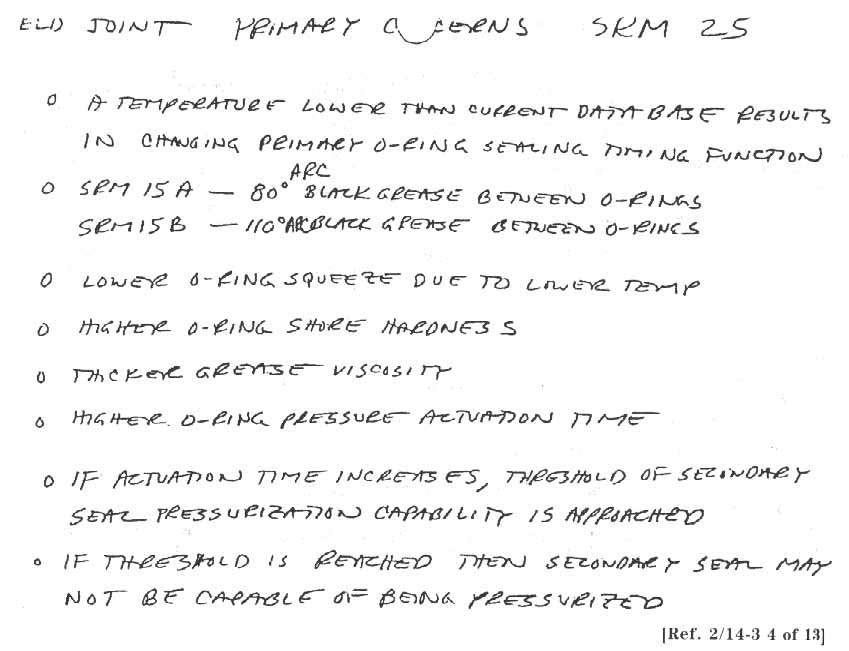 FIELD JOINT PRIMARY CONCERNS SRM 25
O A TEMPERATURE LOWER THAN CURRENT DATA BASE RESULTS
IN CHANGING PRIMARY O-RING SEALING TIMING FUNCTION
O SRM 15A — 80° ARC BLACK GREASE BETWEEN O-RINGS
SRM 15B — 110° ARC BLACK GREASE BETWEEN O-RINGS
O LOWER O-RING SQUEEZE DUE TO LOWER TEMP
O HIGHER O-RING SHORE HARDNESS
O THICKER GREASE VISCOSITY
O HIGHER O-RING PRESSURE ACTUATION TIME
O IF ACTUATION TIME INCREASES, THRESHOLD OF SECONDARY
SEAL PRESSURIZATION CAPABILITY IS APPROACHED
O IF THRESHOLD IS REACHED THEN SECONDARY SEAL MAY
NOT BE CAPABLE OF BEING PRESSURIZED
[Ref. 2/14-3 4 of 13]